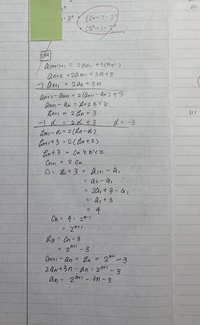 a₍n+1₎+1 = 2a₍n+1₎+3(n+1)
a₍n+2₎ = 2a₍n+1₎+3n+3
-) a₍n+1₎ = 2an + 3n
a₍n+2₎-a₍n+1₎ = 2(a₍n+1₎-an)+3
a₍n+1₎-an = bn とおくと
b₍n+1₎ = 2bn + 3
-) α = 2α + 3 α = -3
b₍n+1₎-α = 2(bn-α)
b₍n+1₎+3 = 2(bn+3)
bn+3 = cn とおくと
c₍n+1₎ = 2cn
c₁ = b₁+3 = a₍1+1₎ - a₁
= a₂-a₁
= 2a₁+3-a₁
= a₁+3
= 4
cn = 4・2ⁿ⁻¹
= 2ⁿ⁺¹
bn = cn-3
= 2ⁿ⁺¹-3
a₍n+1₎-an = bn = 2ⁿ⁺¹-3
2an+3n-an = 2ⁿ⁺¹-3
an = 2ⁿ⁺¹-3n-3